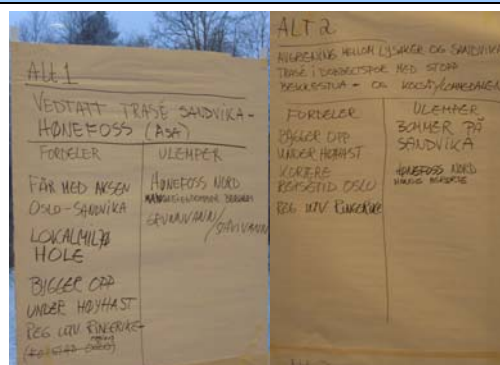 ALT 1
VEDTATT TRASÉ SANDVIKA -
HØNEFOSS (ASA)
FORDELER
FÅR MED AKSEN
OSLO-SANDVIKA
LOKALMILJØ
HOLE
BYGGER OPP
UNDER HØYHAST
REG UTV RINGERIKE
ULEMPER
HØNEFOSS NORD
GRUNNVANN/
ALT 2
AVGRENING MELLOM LYSAKER OG SANDVIKA
TRASÉ I DOBBELTSPOR MED STOPP
BEKKESTUA - OG KOLSÅS/LOMMEDALEN
FORDELER
BYGGER OPP
UNDER HØYHAST
KORTERE
REISETID OSLO
REG UTV RINGERIKE
ULEMPER
BOMMER PÅ
SANDVIKA
HØNEFOSS NORD